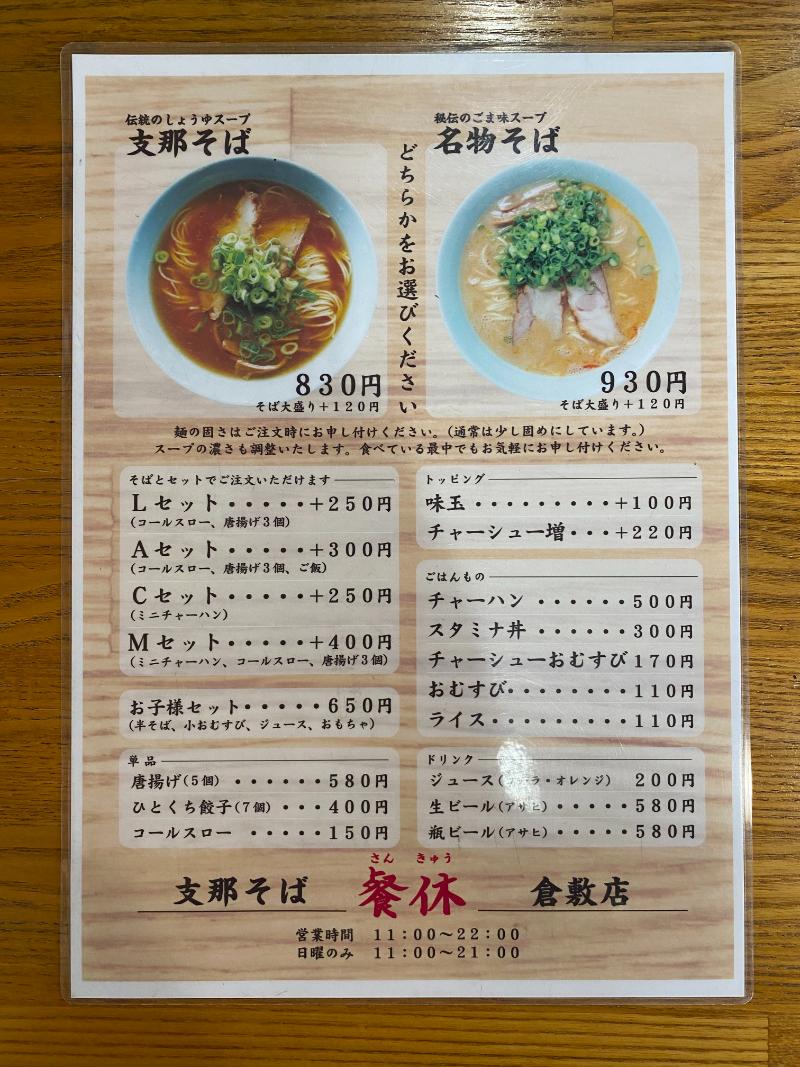 伝統のしょうゆスープ
支那そば
830円
そば大盛り+120円
どちらかをお選びください
秘伝のごま味スープ
名物そば
930円
そば大盛り+120円
麺の固さはご注文時にお申し付けください。(通常は少し固めにしています。)
スープの濃さも調整いたします。食べている最中でもお気軽にお申し付けください。
そばとセットでご注文いただけます
Lセット・・・・・+250円
(コールスロー、唐揚げ3個)
Aセット・・・・・+300円
(コールスロー、唐揚げ3個、ご飯)
Cセット・・・・・+250円
(ミニチャーハン)
Mセット・・・・・+400円
(ミニチャーハン、コールスロー、唐揚げ3個)
お子様セット・・・・・650円
(半そば、小おむすび、ジュース、おもちゃ)
単品
唐揚げ(5個)・・・・・・580円
ひとくち餃子(7個)・・・400円
コールスロー・・・・・150円
トッピング
味玉・・・・・・・・・+100円
チャーシュー増・・・+220円
ごはんもの
チャーハン・・・・・・500円
スタミナ丼・・・・・・300円
チャーシューおむすび170円
おむすび・・・・・・・・110円
ライス・・・・・・・・・110円
ドリンク
ジュース(・オレンジ) 200円
生ビール(アサヒ)・・・・・580円
瓶ビール(アサヒ)・・・・・580円
さん きゅう
支那そば 餐休 倉敷店
営業時間 11:00〜22:00
日曜のみ 11:00〜21:00